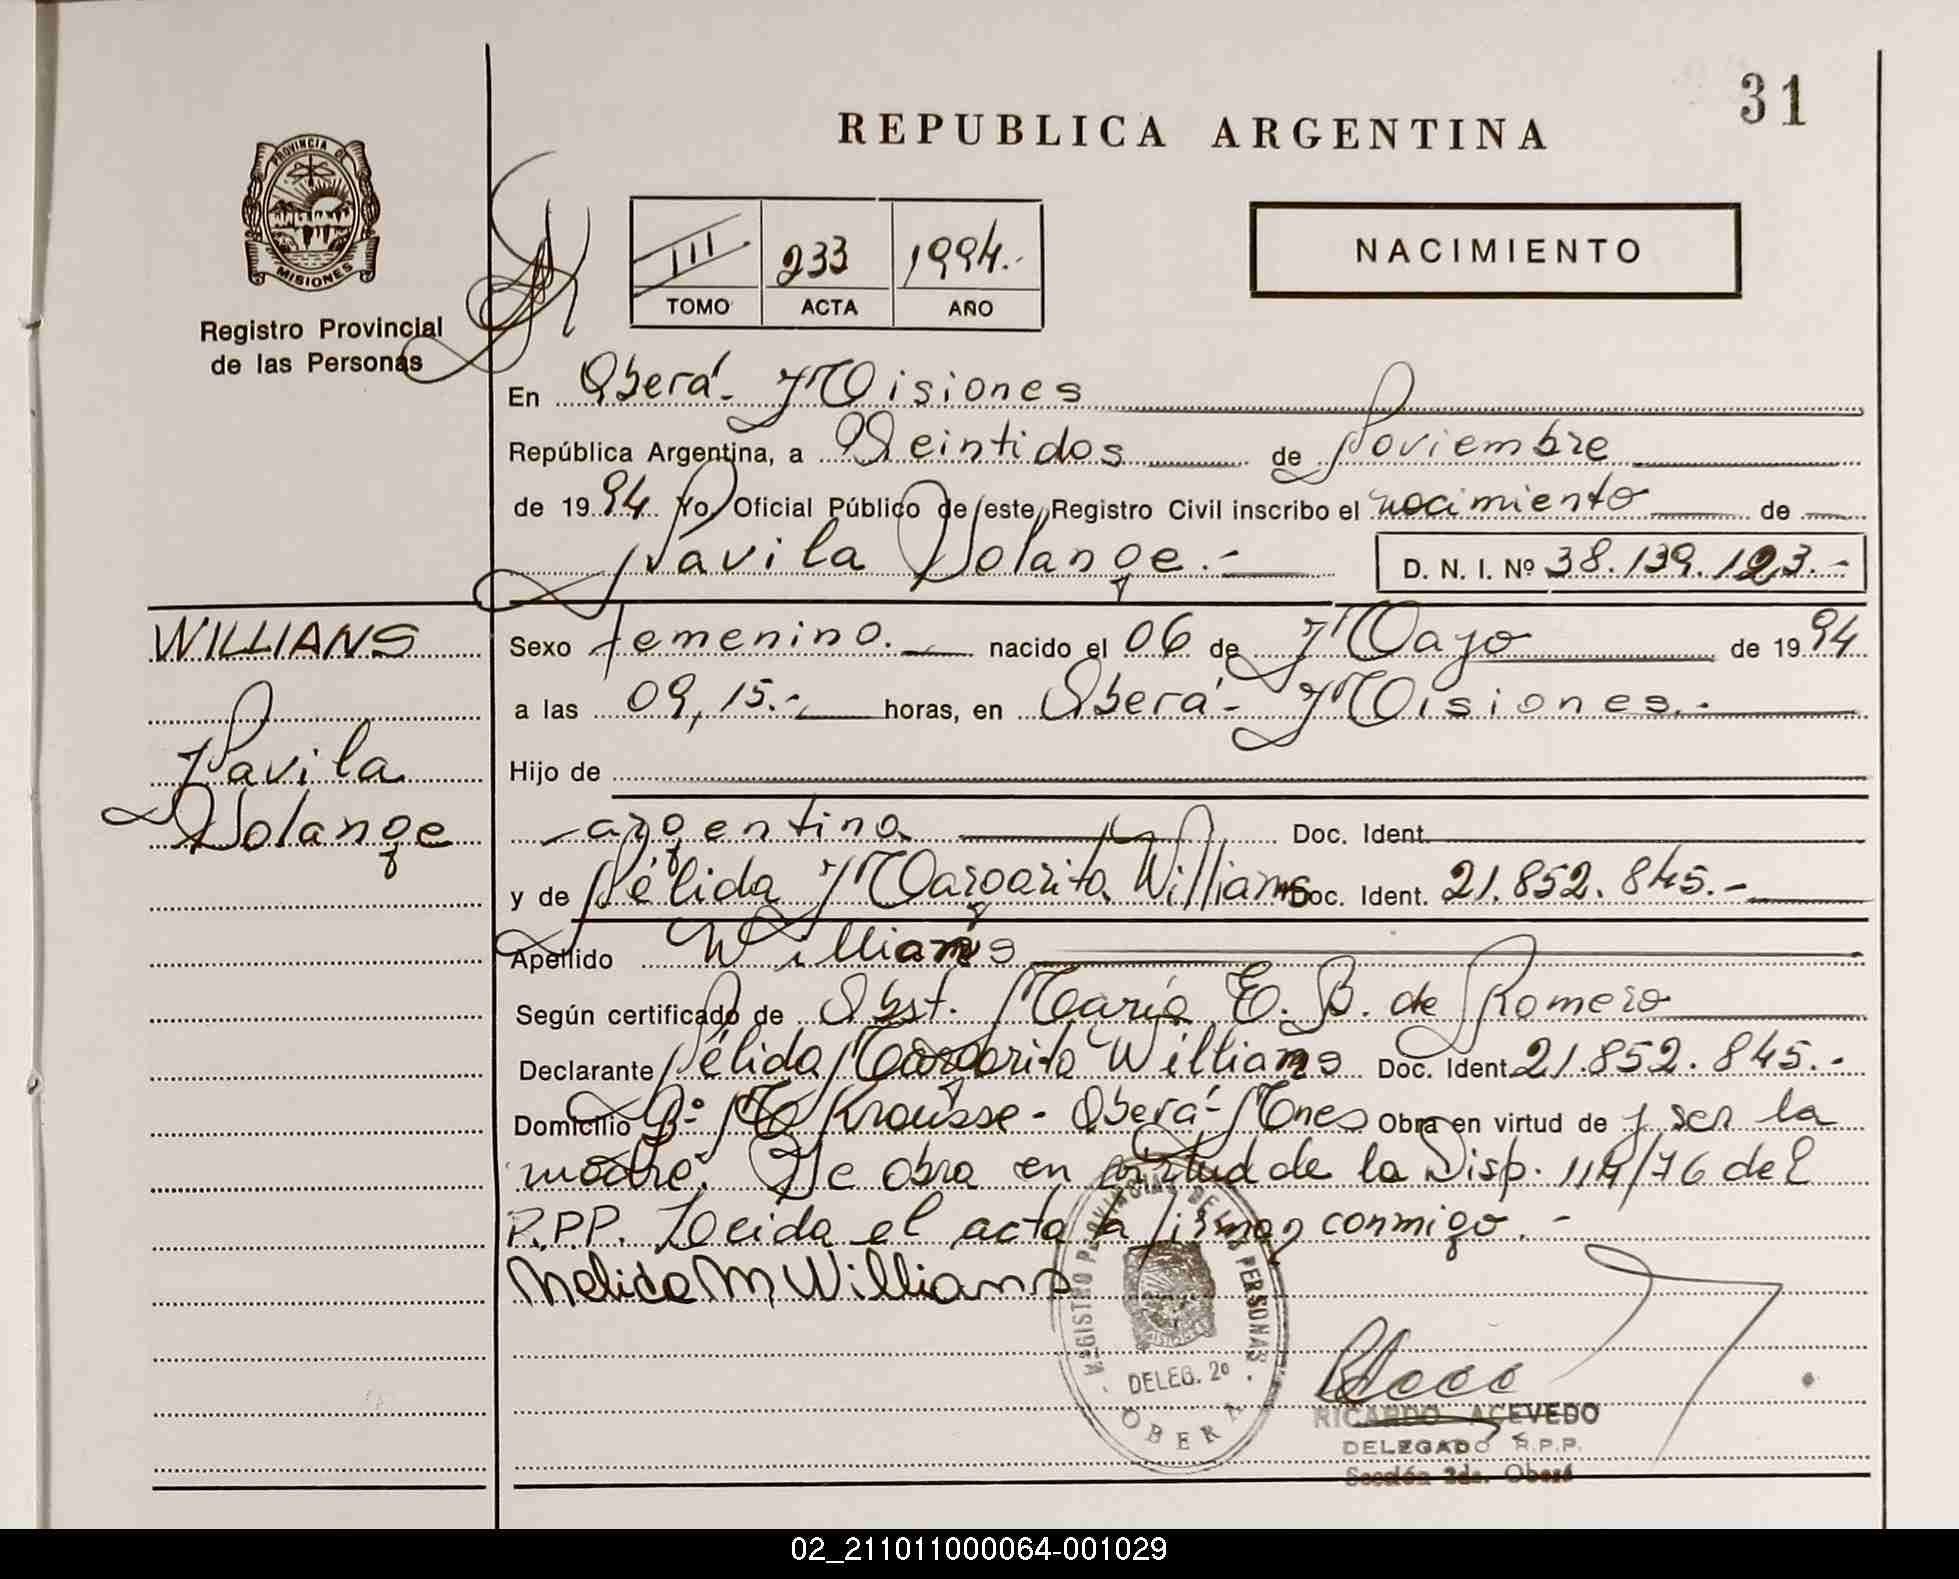 31
REPUBLICA ARGENTINA
PROVINCIA DE
MISIONES
Registro Provincial
de las Personas
III 233 1994.-
TOMO ACTA AÑO
NACIMIENTO
En Oberá - Misiones
República Argentina, a Veintidos de Noviembre
de 1994 Yo, Oficial Público de este Registro Civil inscribo el nacimiento de
Navila Solange.- D. N. I. Nº 38.139.123.-
WILLIANS
Navila
Solange
Sexo femenino. nacido el 06 de Mayo de 1994
a las 09,15.- horas, en Oberá - Misiones.-
Hijo de
argentina Doc. Ident.
y de Nélida Margarita Willians Doc. Ident. 21.852.845.-
Apellido Willians
Según certificado de Obst. María E. B. de Romero
Declarante Nélida Margarita Willians Doc. Ident. 21.852.845.-
Domicilio Bº Krausse - Oberá - Mnes Obra en virtud de ser la
madre. Se obra en virtud de la Disp. 114/76 del
R.P.P. Leida el acta la firman conmigo.-
Nelida M Willians
REGISTRO PROVINCIAL DE LAS PERSONAS
DELEG. 2º
OBERA
RICARDO ACEVEDO
DELEGADO R.P.P.
Sección 2da. Oberá
02_211011000064-001029